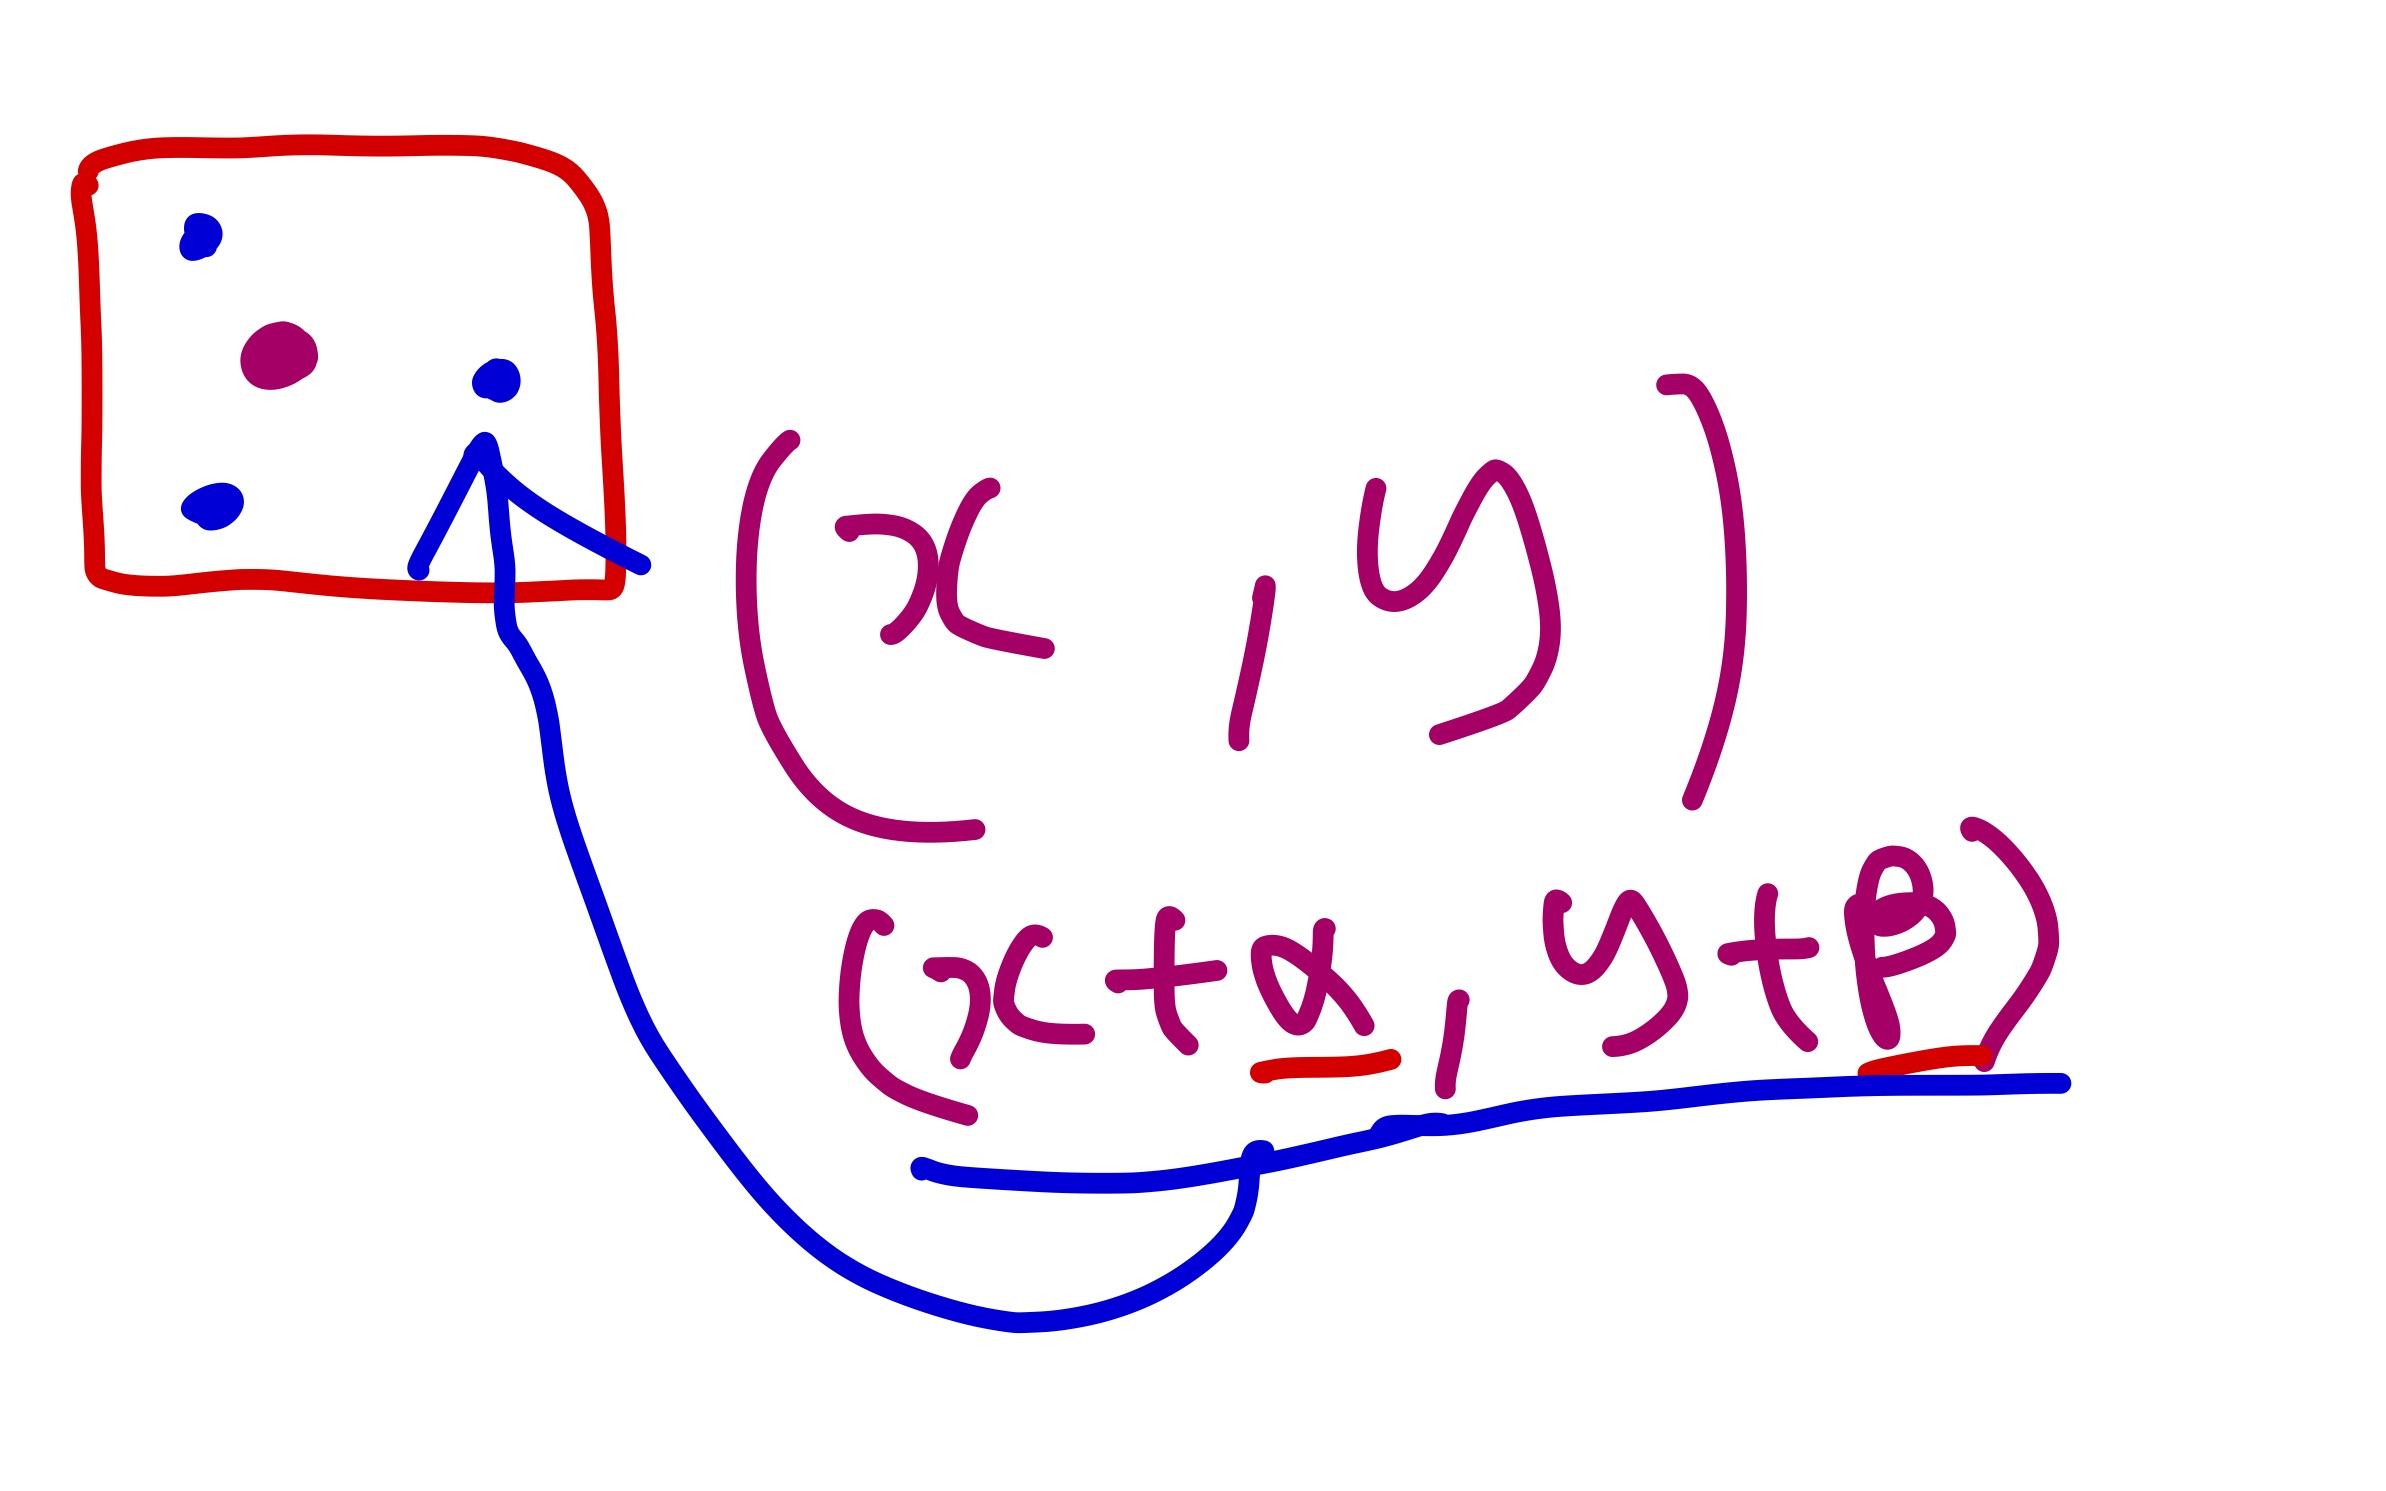 (x, y)
(x+α, y+β)